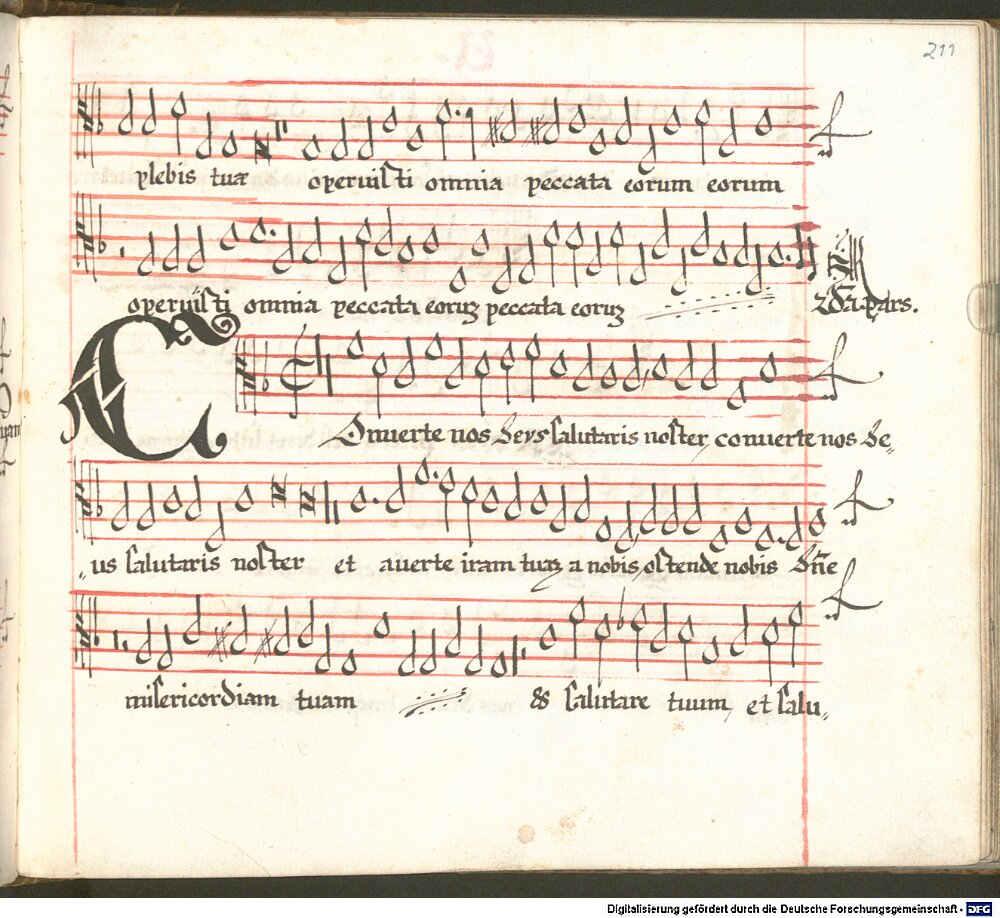 211
plebis tuæ operuisti omnia peccata eorum eorum
operuisti omnia peccata eoruꝫ peccata eoruꝫ
2da pars.
Conuerte nos Deus salutaris noster, conuerte nos De„
„us salutaris noster et auerte iram tuaꝫ a nobis, ostende nobis Dñe
misericordiam tuam & salutare tuum, et salu„
Digitalisierung gefördert durch die Deutsche Forschungsgemeinschaft - DFG